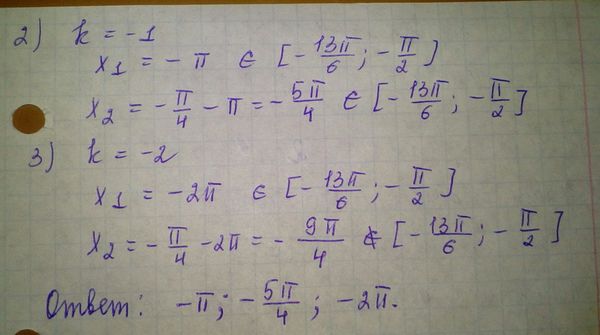 2) k = -1
x₁ = -π ∈ [-13π/6; -π/2]
x₂ = -π/4 - π = -5π/4 ∈ [-13π/6; -π/2]
3) k = -2
x₁ = -2π ∈ [-13π/6; -π/2]
x₂ = -π/4 - 2π = -9π/4 ∉ [-13π/6; -π/2]
Ответ: -π; -5π/4; -2π.